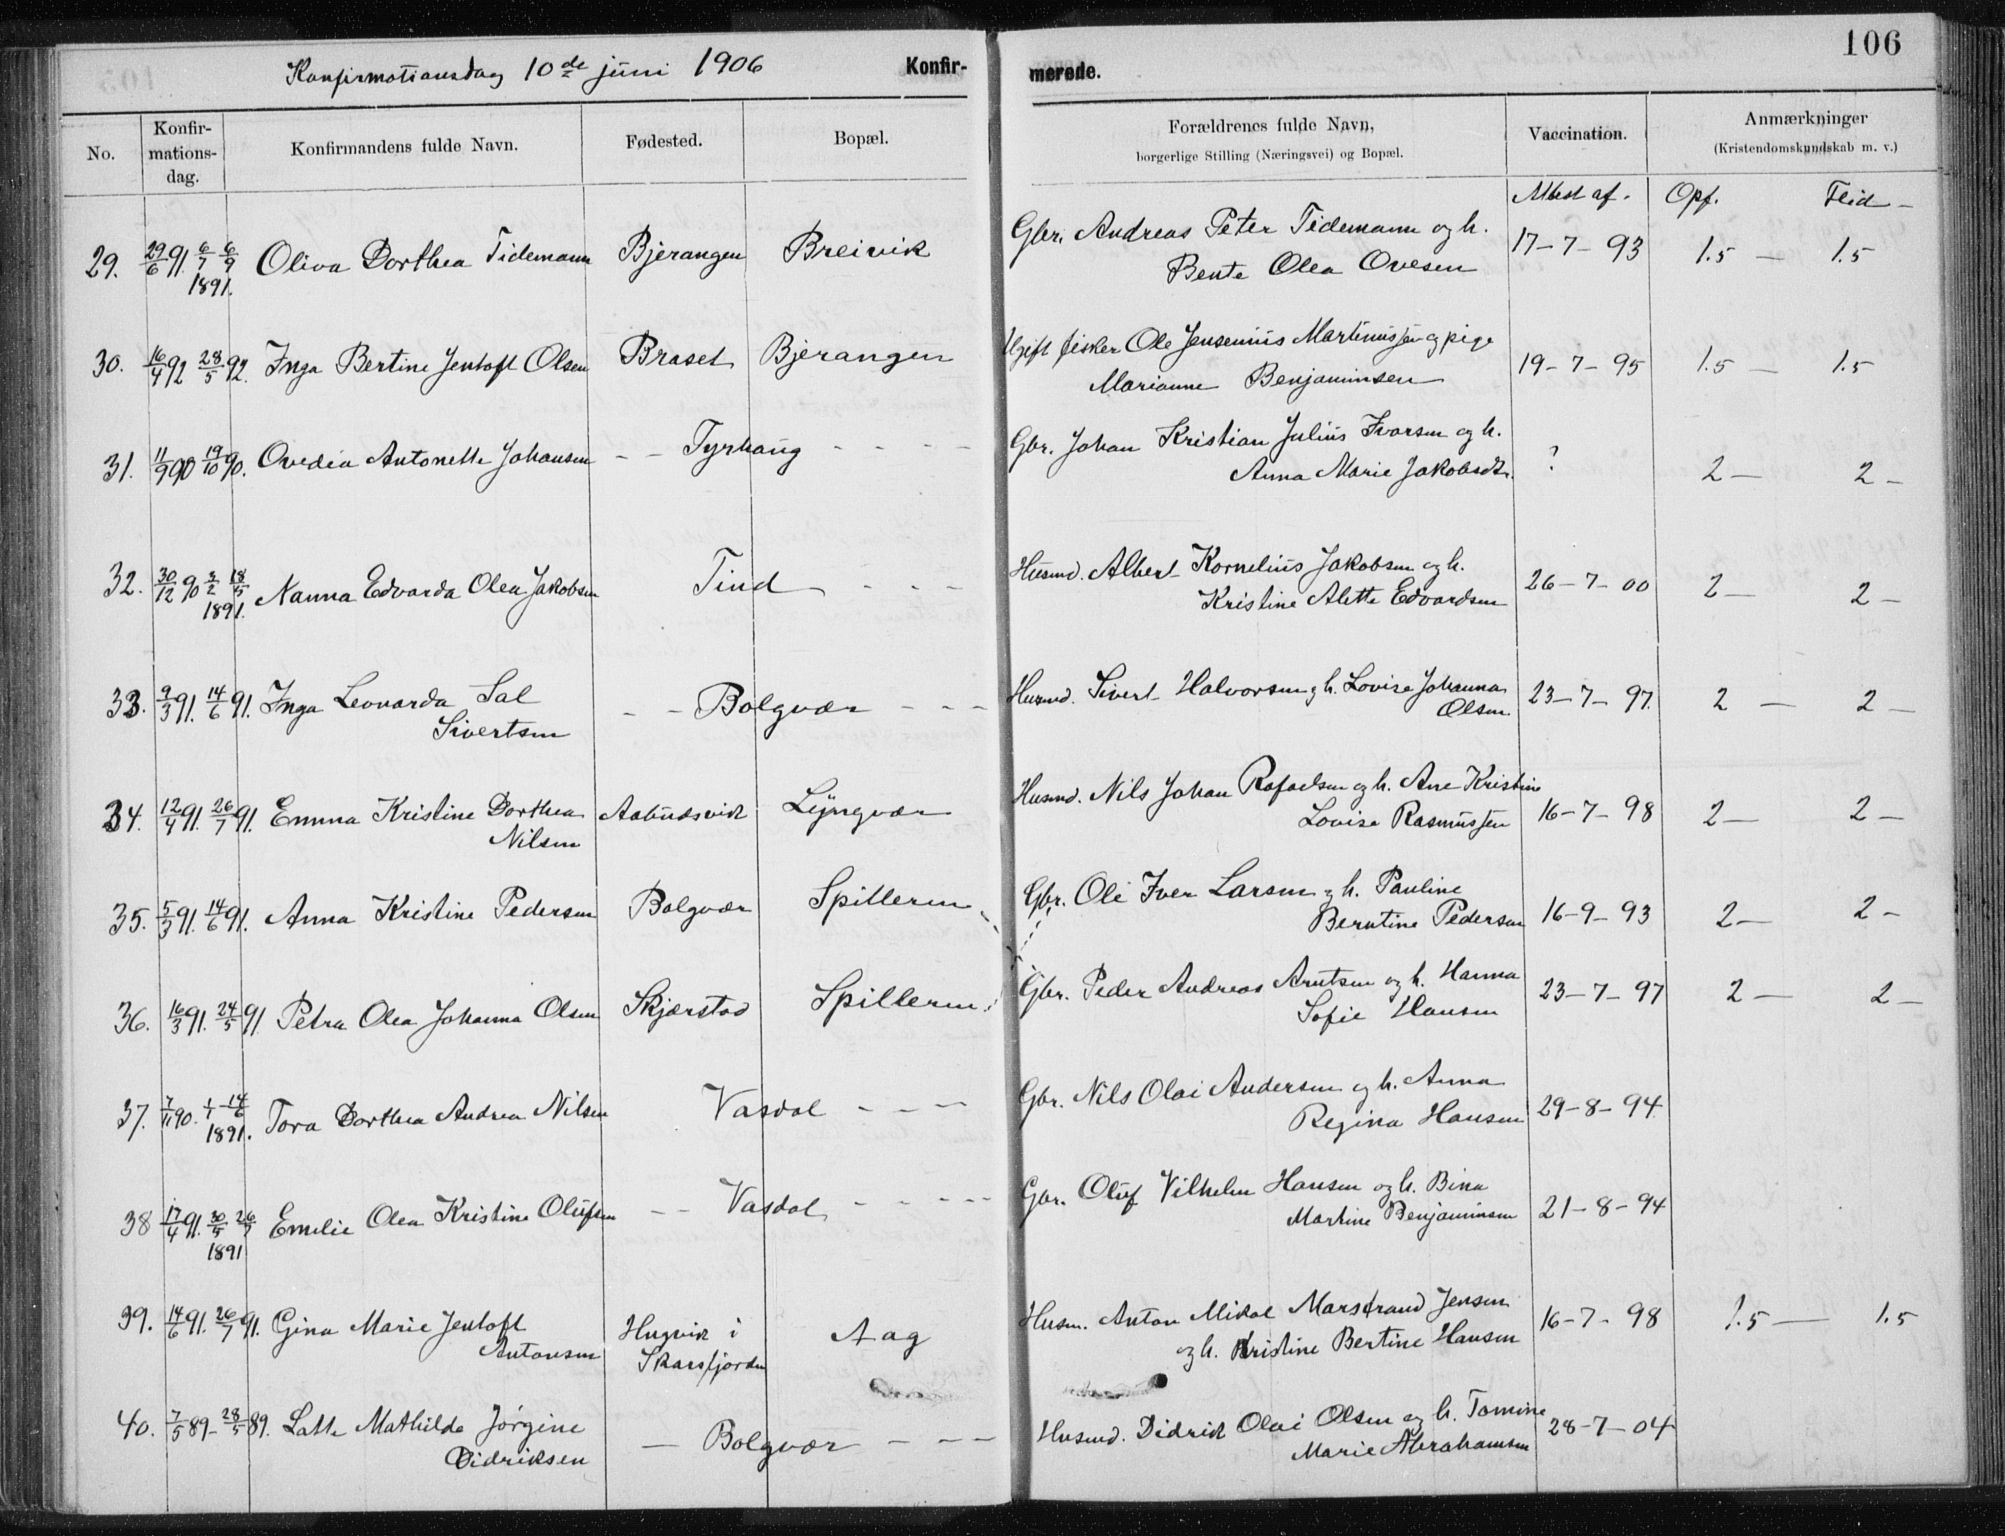 Konfirmationsdag 10de juni 1906 Konfir- merede. 106
No. Konfir-mations-dag. Konfirmandens fulde Navn. Fødested. Bopæl. Forældrenes fulde Navn, borgerlige Stilling (Næringsvei) og Bopæl. Vaccination. Anmærkninger (Kristendomskundskab m. v.)
Attest af. Opf. Flid -
29. 29/6 91. 6/7 6/9 Oliva Dorthea Tidemann Bjerangen Breivik Gbr. Andreas Peter Tidemann og h. 17-7-93 1.5 — 1.5
1891. Bente Olea Ovesen
30. 16/4 92 28/5 92. Inga Bertine Jentoft Olsen Braset Bjerangen Ugift fisker Ole Jensenius Martinussen og pige 19-7-95 1.5 — 1.5
Marianne Benjaminsen
31. 11/9 90 19/10 90. Ovedia Antonette Johansen - - Tyrhaug - - - - Gbr. Johan Kristian Julius Ivarsen og h. ? 2 — 2 -
Anna Marie Jakobsdtr.
32. 30/12 90 2/2 18/5 Nanna Edvarda Olea Jakobsen Tind - - - Husmd. Albert Kornelius Jakobsen og h. 26-7-00 2 — 2 -
1891. Kristine Alette Edvardsen
33. 9/3 91. 14/6 91. Inga Leonarda Sal - - Bolgvær - - - Husmd. Sivert Halvorsen og h. Lovise Johanna 23-7-97. 2 — 2 -
Sivertsen Olsen
34. 12/4 91. 26/7 91. Emma Kristine Dorthea Aabudsvik Lyngvær Husmd. Nils Johan Rafaelsen og h. Ane Kristine 16-7-98 2 — 2 -
Nilsen Lovise Rasmussen
35. 5/3 91. 14/6 91. Anna Kristine Pedersen Bolgvær Spilleren Gbr. Ole Iver Larsen og h. Pauline 16-9-93 2 — 2 -
Berntine Pedersen
36. 16/3 91. 24/5 91 Petra Olea Johanna Olsen Skjærstad Spilleren Gbr. Peder Andreas Arntsen og h. Hanna 23-7-97 2 — 2 -
Sofie Hansen
37. 7/11 90. 1/1 14/6 Tora Dorthea Andrea Nilsen Vasdal - - - Gbr. Nils Olai Andersen og h. Anna 29-8-94.
1891. Regina Hansen
38 17/4 91. 30/5 26/7 Emelie Olea Kristine Olufsen - - Vasdal - - - - Gbr. Oluf Vilhelm Hansen og h. Bina 21-8-94
1891 Martine Benjaminsen
39. 14/6 91. 26/7 91. Gina Marie Jentoft Hugvik i Aag Husm. Anton Mikal Marstrand Jensen 16-7-98 1.5 — 1.5
Antonsen Skarsfjorden og h. Kristine Bertine Hansen
40. 7/5 89 - 28/5 89. Latte Mathilde Jørgine — Bolgvær - - - Husmd. Didrik Olai Olsen og h. Tomine 28-7-04
Didriksen Marie Abrahamsen